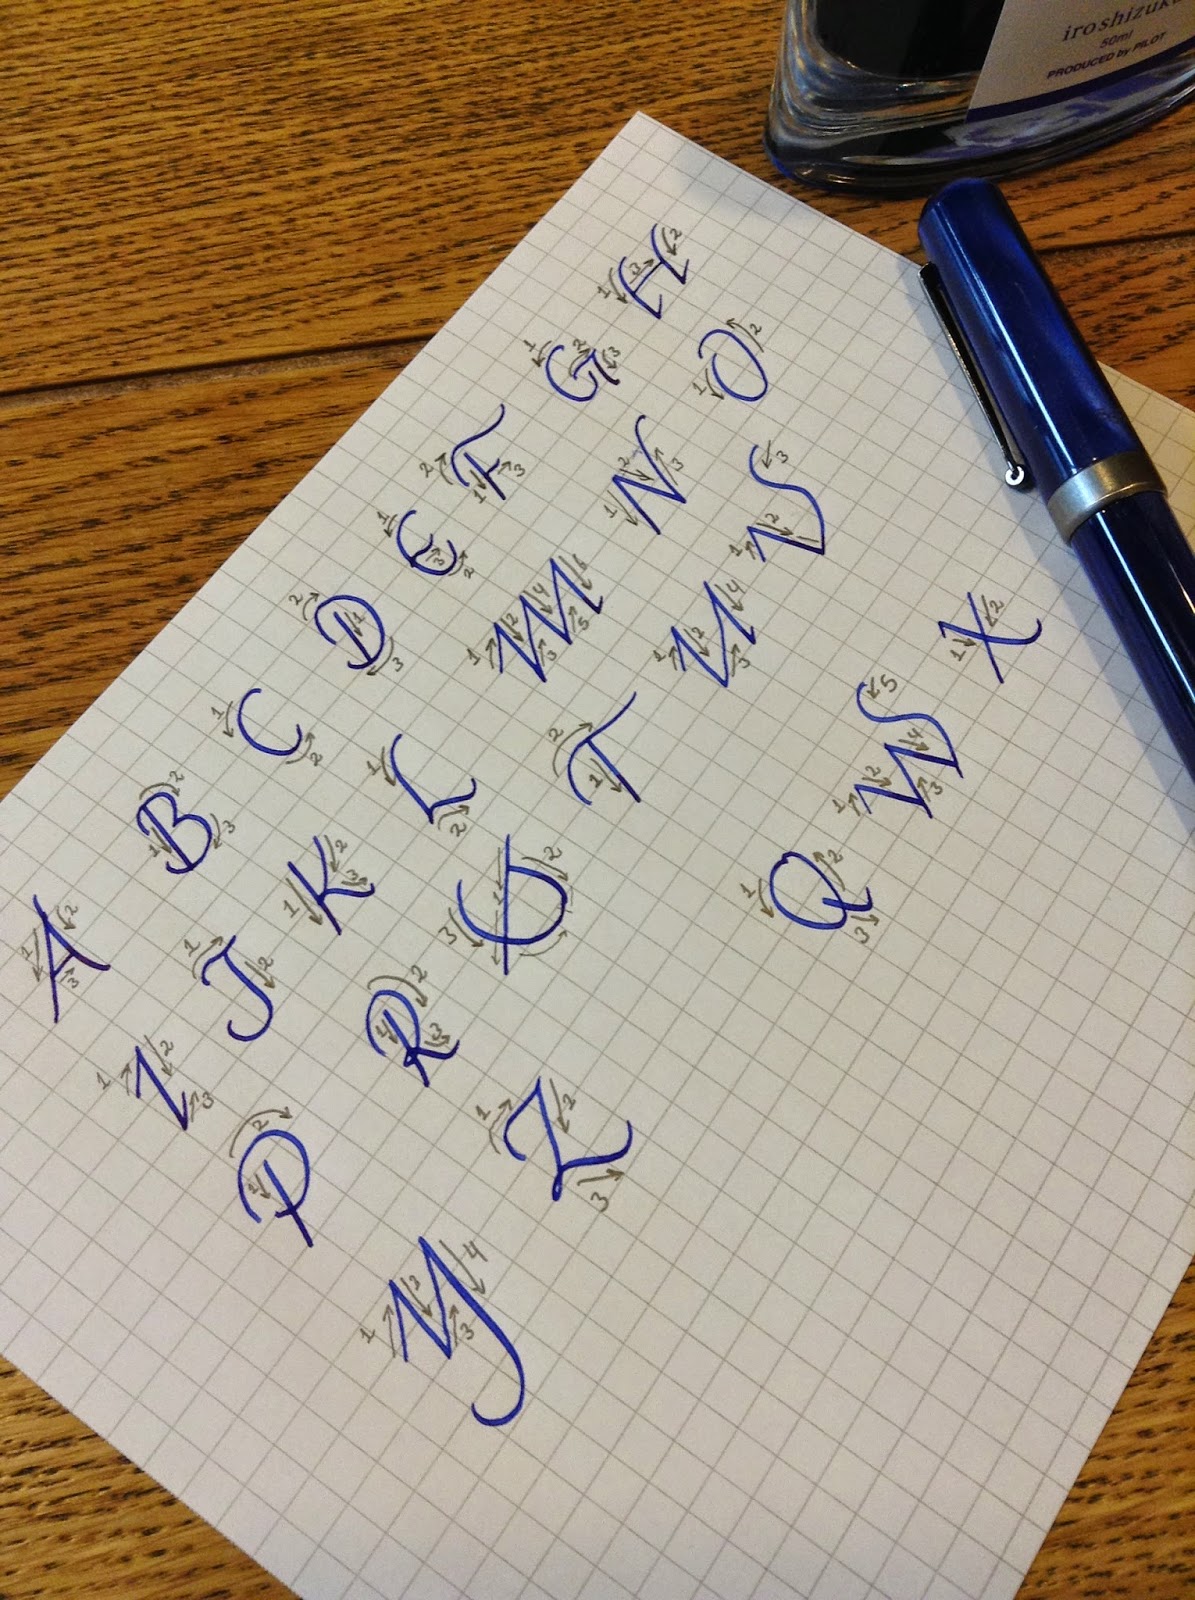 iroshizuku
50ml
PRODUCED by PILOT
A B C D E F G H
I J K L M N O
P R S T U V
Y Z Q W X